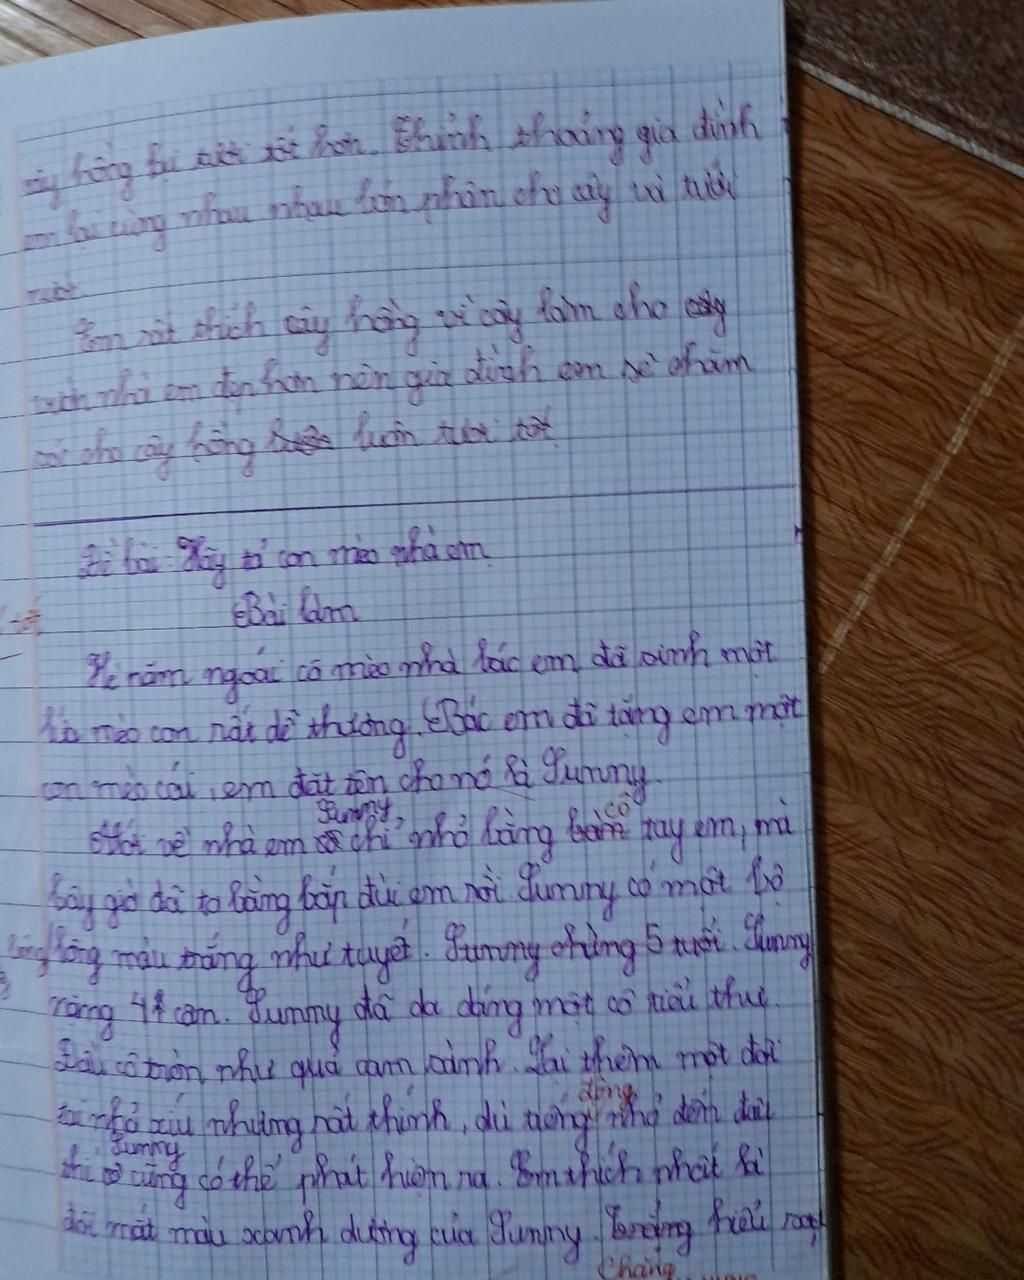 cây hồng lại tươi tốt hơn. Thỉnh thoảng gia đình
em lại cùng nhau nhau bón phân cho cây và tưới
nước.
Em rất thích cây hồng vì cây làm cho
nhà em đẹp hơn nên gia đình em sẽ chăm
sóc cho cây hồng luôn tươi tốt.
Đề bài: Hãy tả con mèo nhà em.
Bài làm
Hè năm ngoái cô mèo nhà bác em đã sinh một
lứa mèo con rất dễ thương. Bác em đã tặng em một
con mèo cái, em đặt tên cho nó là Yummy.
Yummy, cổ
Mới về nhà em chỉ nhỏ bằng tay em, mà
bây giờ đã to bằng bắp đùi em rồi. Yummy có một bộ
lông lông màu trắng như tuyết. Yummy chừng 5 tuổi. Yummy
nặng 4 cam. Yummy đã da dáng một cô tiểu thư.
Đầu cô tròn như quả cam sành. Lại thêm một đôi
động
tai nhỏ xíu nhưng rất thính, dù tiếng nhỏ đến đâu
Yummy
thì cũng có thể phát hiện ra. Em thích nhất là
đôi mắt màu xanh dương của Yummy. hiểu
Chẳng